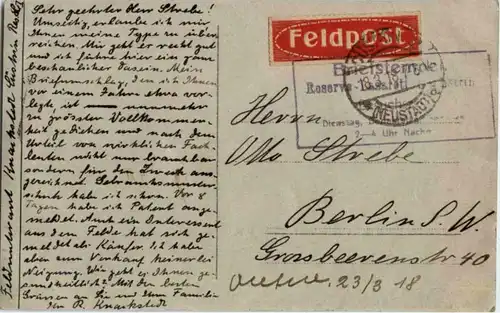 Sehr geehrter Herr Strebe!
Umseitig erlaube ich mir
Ihnen meine Type zu über-
reichen. Mir geht es recht gut
und ich führe hier ein ganz
beschauliches Dasein. Mein
Briefumschlag, den ich Ihnen
vor einem Jahre etwa vor-
legte ist nunmehr
zu grösster Vollkommen-
heit gediehen und nach dem
Urteil von wirklichen Fach-
leuten nicht nur brauchbar
sondern für den Zweck aus-
gezeichnet. Gebrauchsmuster-
schutz habe ich schon. Vor 8
Tagen habe ich Patent ange-
meldet. Auch ein Interessent
aus dem Felde hat sich ge-
meldet als Käufer. Ich habe
aber zum Verkauf keinerlei
Neigung. Wie geht es Ihnen ge-
sundheitlich? Mit den besten
Grüssen an Sie und Ihre Familie
Ihr R. Knackstedt
Feldpost
Briefstempel
Reserve-Lazarett
Dienstag,
2-4 Uhr Nachm
(NEUSTADT)
Herrn
Otto Strebe
Berlin S.W.
Grossbeerenstr 40
23/3 18